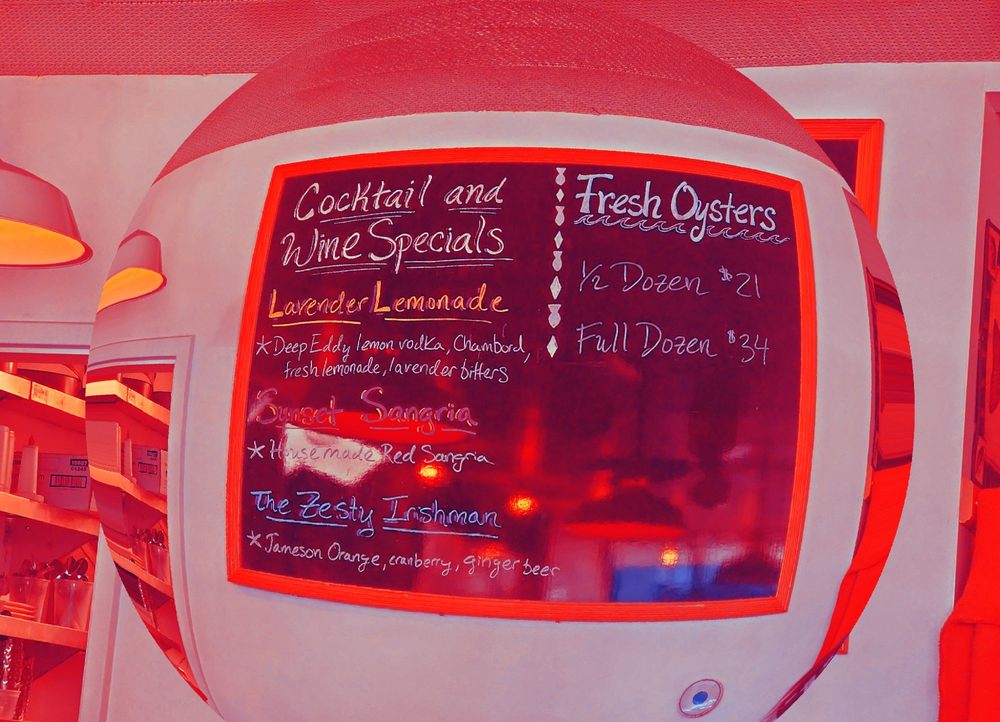 Cocktail and
Wine Specials
Lavender Lemonade
* Deep Eddy lemon vodka, Chambord,
fresh lemonade, lavender bitters
Sunset Sangria
* House made Red Sangria
The Zesty Irishman
* Jameson Orange, cranberry, ginger beer
Fresh Oysters
1/2 Dozen $21
Full Dozen $34